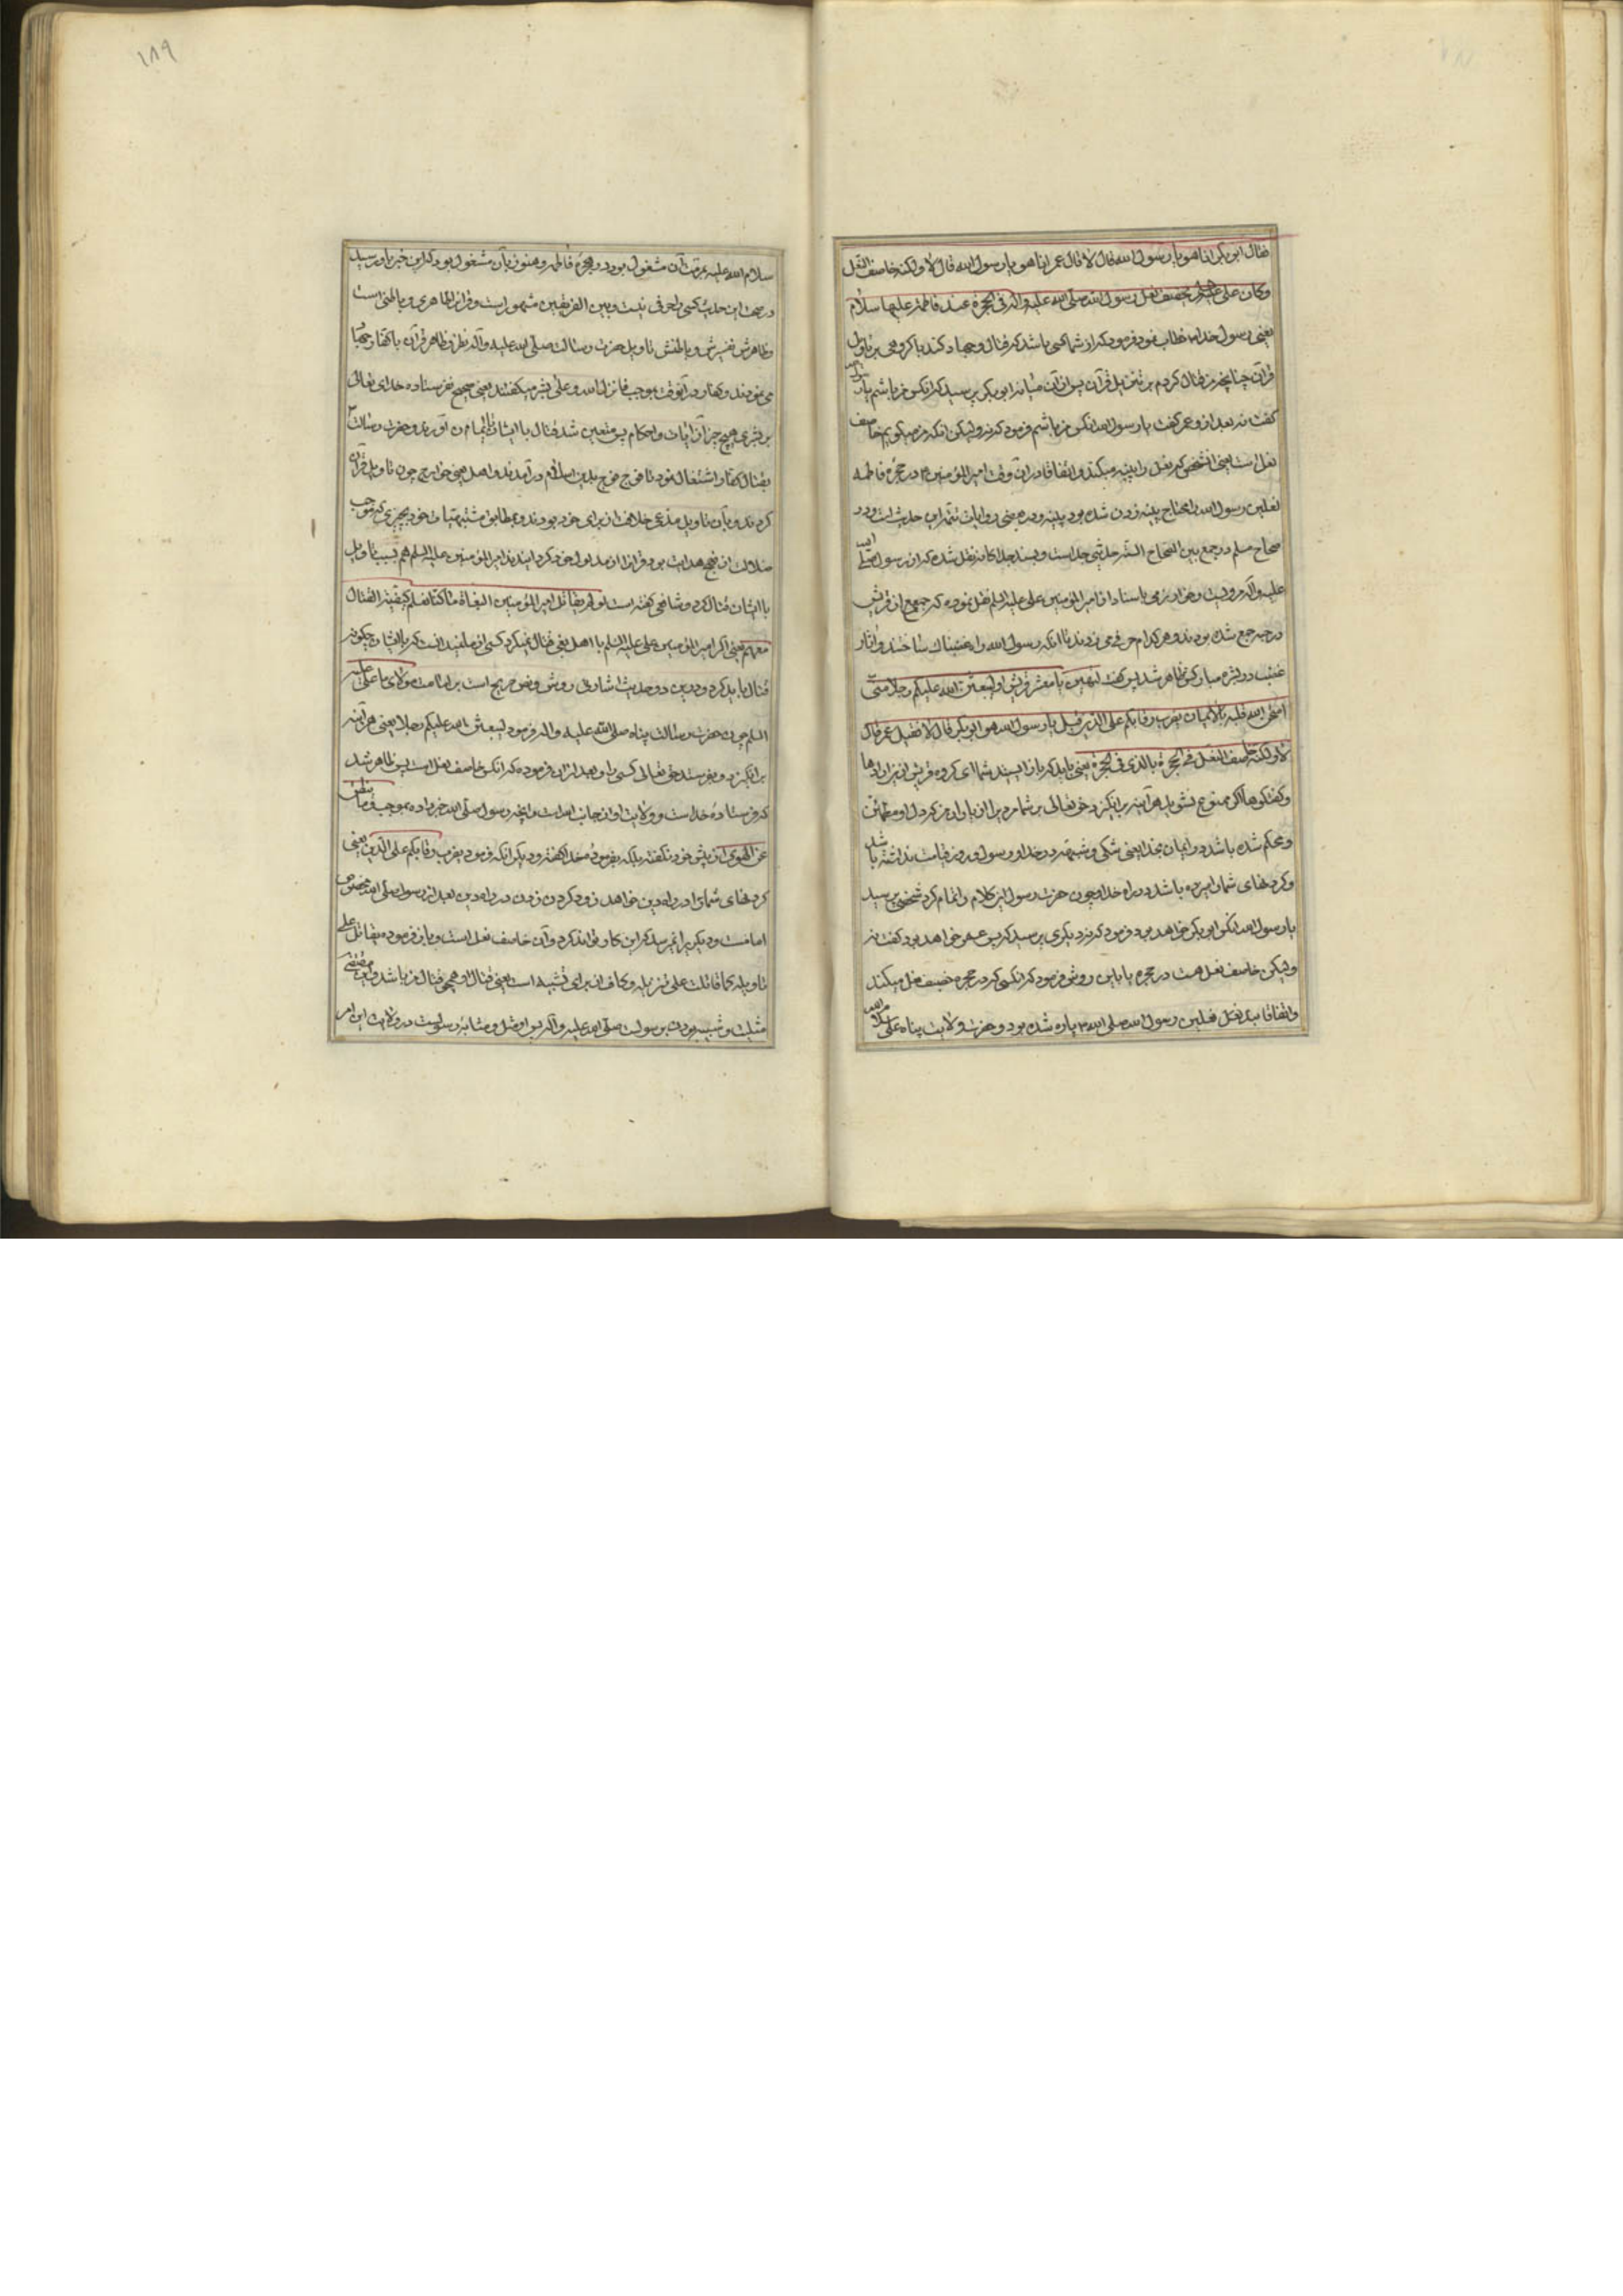 فقال ابو بکر انا هو یا رسول الله قال لا قال عمر انا هو یا رسول الله قال لا ولکنه خاصف النعل
وکان علی علیه السلم یخصف نعل رسول الله صلی الله علیه واله فی الحجرة عند فاطمة علیها سلام
یعنی رسول خدا خطاب نمود فرمود که از شما کسی باشد که قتال و جهاد کند با کروهی بر تاویل
قرآن چنانچه من قتال کردم بر تنزیل قرآن پس از آن میانه ابو بکر پرسید که آنکس من باشم یا رسول الله
کفت نه بعد از و عمر کفت یا رسول الله آنکس من باشم فرمود که نه ولیکن آنکه من میکویم خاصف
نعل است یعنی آنشخص که نعل را پینه میکند و اتفاقا در آن وقت امیر المؤمنین در حجره فاطمه
نعلین رسول الله را محتاج پینه زدن شده بود پینه و در بعضی روایات تتمه این حدیث است و در
صحاح مسلم و در جمع بین الصحاح الستّه حدیثی جداست و بسند جداکانه نقل شده که از رسول صلی الله
علیه وآله مرویست و خوارزمی باسناد از امیر المؤمنین علی علیه السلم نقل نموده که جمعی از قریش
در جمع شده بودند و هر کدام حرفی می زدند تا آنکه رسول الله را غضبناک ساختند و آثار
غضب در بشره مبارکش ظاهر شد پس کفت لتنتهین یا معشر قریش او لیبعثن الله علیکم رجلا منی
امتحن الله قلبه بالایمان یضرب رقابکم علی الدّین قیل یا رسول الله هو ابو بکر قال لا فقیل عمر قال
لا ولکنه خاصف النعل فی الحجرة بالذی فی الحجرة یعنی باید که باز ایستید شما ای کروه قریش از این ادا ها
و کفتکوها اکر ممنوع نشوید هر آینه برانکیزد حق تعالی بر شما مردیرا از یاران من که دل او مطمئن
و محکم شده باشد در ایمان بخدا یعنی شکی و شبهه در خدا و رسول و روز قیامت نداشته باشد
و کردنهای شما را برده باشد در راه خدا و چون حضرت رسول این کلام را تمام کرد شخصی پرسید
یا رسول الله آنکس ابو بکر خواهد بود فرمود که نه دیکری پرسید که پس عمر خواهد بود کفت نه
ولیکن خاصف نعل هست در حجره یا باین روش فرمود که آنکسی که در حجره خصف نعل میکند
و اتفاقا بند نعل نعلین رسول الله صلی الله پاره شده بود و حضرت ولایت پناه علی سلام الله
١٨٩
سلام الله علیه بمرمت آن مشغول بود در حجره فاطمه و هنوز بآن مشغول بود که این خبر باو رسید
در صحت این حدیث کسی را حرفی نیست و بین الفریقین مشهور است و قرآنرا ظاهری و باطنی است
و ظاهرش تفسیرش و باطنش تاویل حضرت رسالت صلی الله علیه وآله نظر بظاهر قرآن با کفار جنکها
می نمودند و کفار در آنوقت بموجب ما نزل الله و علی بشر میکفتند یعنی هیچ نفرستاده خدای تعالی
بر بشری هیچ چیز از آیات و احکام پس متعین شد قتال با ایشان تا ایمان آوردند و حضرت رسالت
بقتال کفار اشتغال نمود تا فوج فوج بدین اسلام در آمدند و اهل بغی خوارج چون تاویل قرآن
کردند و بآن تاویل مدعی خلافت از برای خود بودند و مطابق مشتهیات خود بچیزی که موجب
ضلالت از نهج هدایت بود و قرآنرا از مدلول خود کردانیدند امیر المؤمنین علیه السلم هم بسبب تاویل
با ایشان قتال کرد و شافعی کفته است لو لم یقاتل امیر المؤمنین البغاة ما کنا نعلم کیفیة القتال
معهم یعنی اکر امیر المؤمنین علی علیه السلم با اهل بغی قتال نمیکرد کسی از ما نمیدانست که با ایشان چکونه
قتال باید کرد و درین دو حدیث اشارتی روشن و نص صریح است بر امامت مولای ما علی علیه
السلم چون حضرت رسالت پناه صلی الله علیه واله فرمود لیبعثن الله علیکم رجلا یعنی هر آینه
برانکیزد و بفرستد حق تعالی کسی را و بعد از آن فرموده که آنکس خاصف نعل است پس ظاهر شد
که فرستاده خداست و ولایت او از جانب الله است و آنچه رسول صلی الله خبر داده بموجب وما ینطق
عن الهوی از پیش خود نکفته بلکه بفرموده خدا کفته و دیکر آنکه فرمود یضرب رقابکم علی الدین یعنی
کردنهای شما را در راه دین خواهد زد و کردن زدن در راه دین بعد از رسول صلی الله مخصوص
امامست و دیکریرا نمیرسد که این کار تواند کرد و آن خاصف نعل است و باز فرموده یقاتل علی
تاویله کما قاتلت علی تنزیله و کاف از برای تشبیه است یعنی قتال او همچو قتال من باشد و این مقتضی
مثلیت و شبیه بودن برسولست صلی الله علیه وآله پس او مثل و مشابه رسولست در ولایت این امر